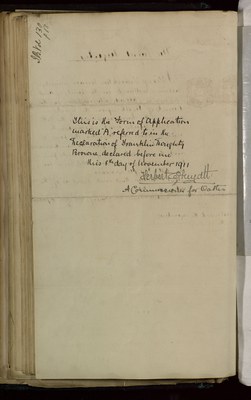 This is the Form of Application
marked A, referred to in the
Declaration of Franklin Doughty
Browne declared before me
this 1st day of November 1911
A Commissioner for Oaths